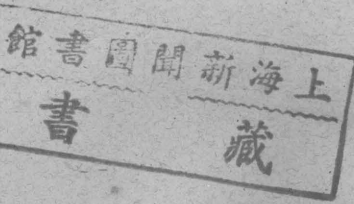 上海新聞圖書館
藏書